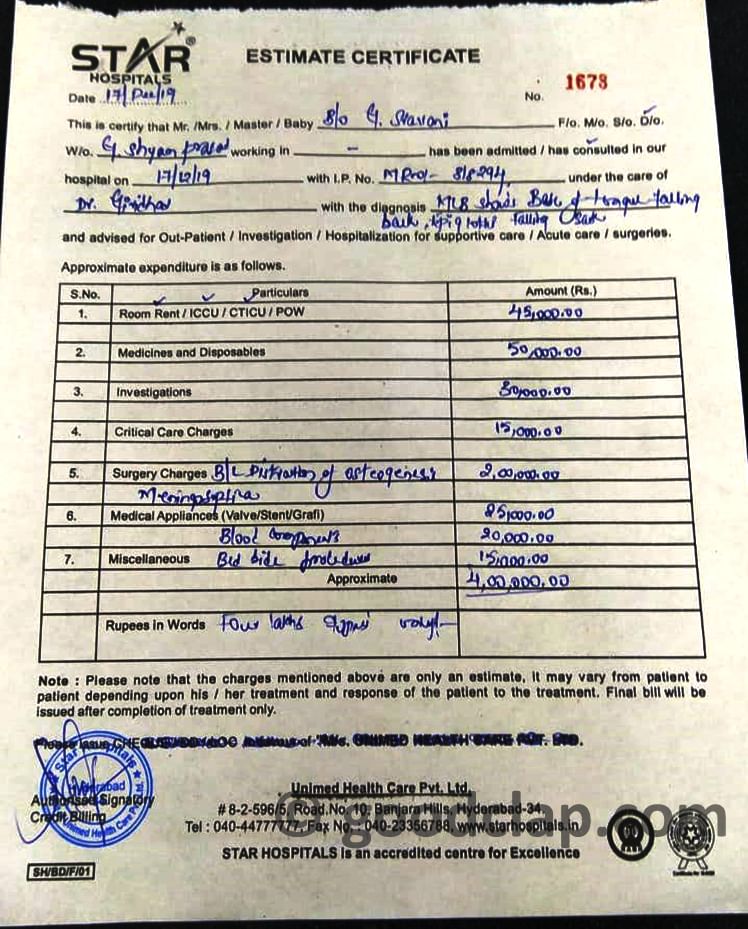 STAR
HOSPITALS
ESTIMATE CERTIFICATE
No. 1673
Date 17/Dec/19
This is certify that Mr. /Mrs. / Master / Baby B/o G. Sravani F/o. M/o. S/o. D/o.
W/o. G. Shyam prasad working in - has been admitted / has consulted in our
hospital on 17/12/19 with I.P. No. under the care of
Dr. Giridhar with the diagnosis MLB shows Base of tongue falling
back, Epiglottis falling back
and advised for Out-Patient / Investigation / Hospitalization for supportive care / Acute care / surgeries.
Approximate expenditure is as follows.
S.No. Particulars Amount (Rs.)
1. Room Rent / ICCU / CTICU / POW 45,000.00
2. Medicines and Disposables 50,000.00
3. Investigations 30,000.00
4. Critical Care Charges 15,000.00
5. Surgery Charges B/L of 2,00,000.00
6. Medical Appliances (Valve/Stent/Grafi) 25,000.00
Blood components 20,000.00
7. Miscellaneous Bed side procedures 15,000.00
Approximate 4,00,000.00
Rupees in Words Four lakhs only/-
Note : Please note that the charges mentioned above are only an estimate, it may vary from patient to
patient depending upon his / her treatment and response of the patient to the treatment. Final bill will be
issued after completion of treatment only.
Please issue CHEQUE/DD in favour of "M/s. UNIMED HEALTH CARE PVT. LTD.
Star Hospitals
Hyderabad
Unimed Health Care Pvt.
Authorised Signatory
Credit Billing
Unimed Health Care Pvt. Ltd.
# 8-2-596/5, Road.No. 10, Banjara Hills, Hyderabad-34
Tel : 040-4477777, Fax No. : 040-23356788, www.starhospitals.in
STAR HOSPITALS is an accredited centre for Excellence
SH/BD/F/01